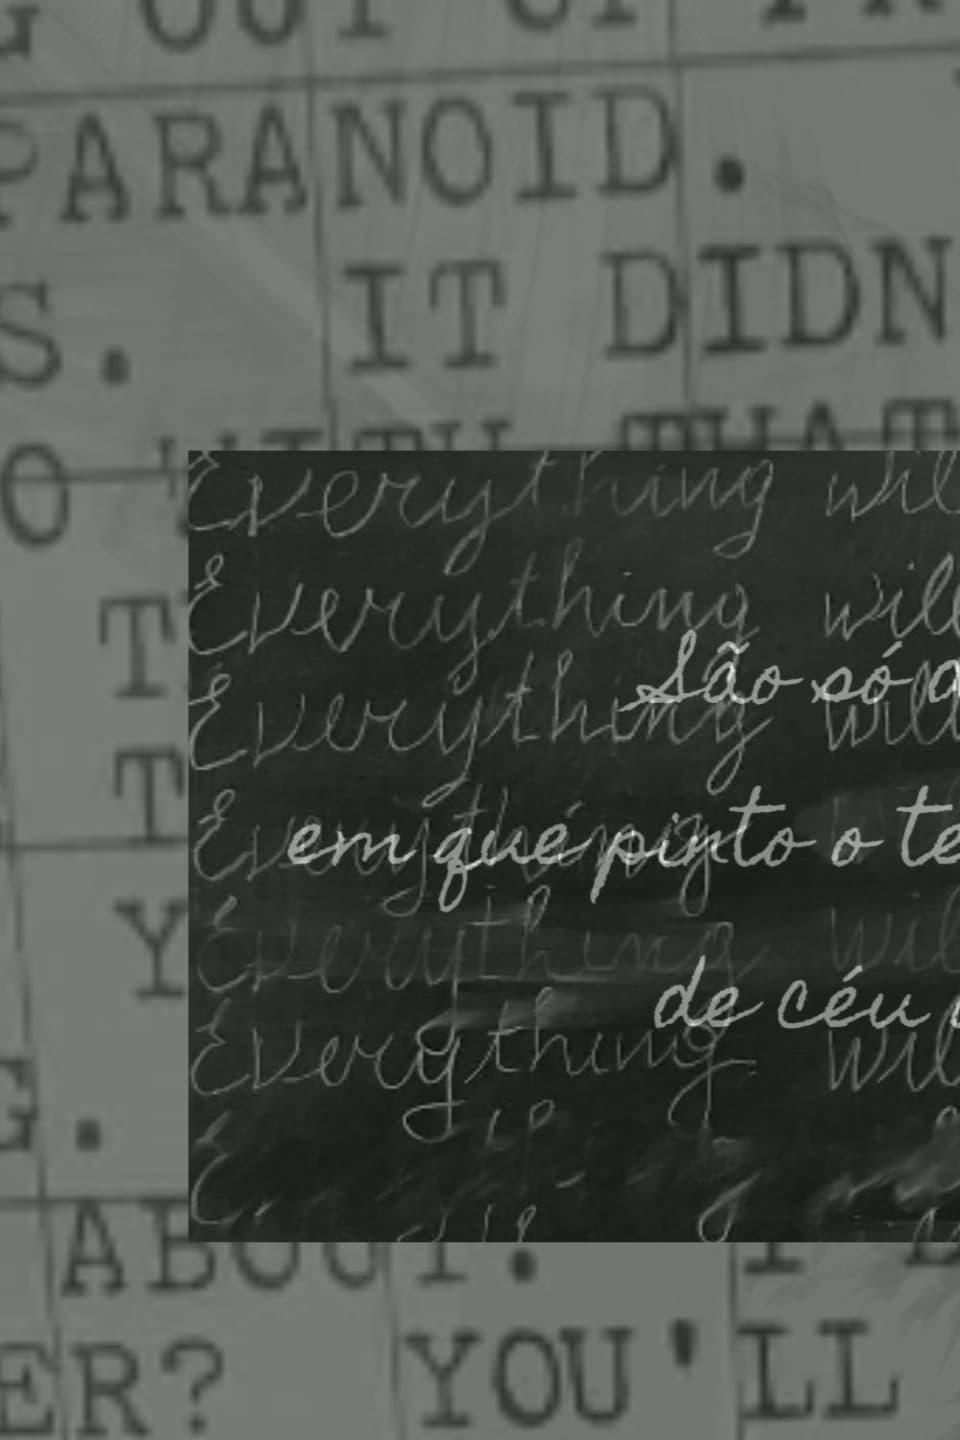 G OUT OF
PARANOID.
S. IT DIDN
O WITH THAT
T
T
Y
G.
ABOUT. I
ER? YOU'LL
Everything wil
Everything will
São só a
Everything will
em que pinto o te
Everything
Everything wil
de céu
Everything wil